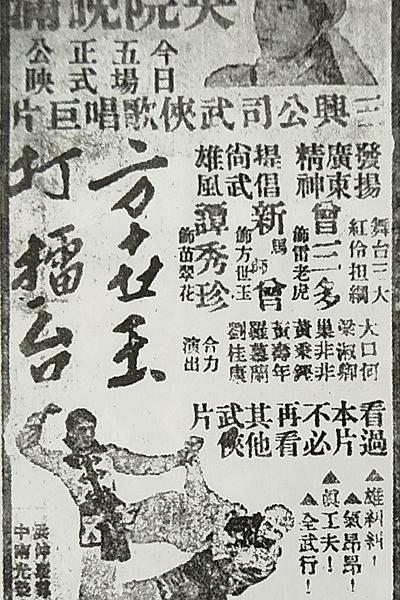 央院晚
今日
五場
正式
公映
三興公司武俠歌唱巨片
發揚
廣東
精神
提倡
尚武
雄風
舞台三大
紅伶担綱
曾三多
飾雷老虎
新馬師曾
飾方世玉
譚秀珍
飾苗翠花
大口何
梁淑卿
巢非非
黃秉鏗
黃壽年
羅慕蘭
劉桂康
合力
演出
方世玉
打擂台
看過
本片
不必
再看
其他
武俠
片
▲雄糾糾！
▲氣昂昂！
▲眞工夫！
▲全武行！